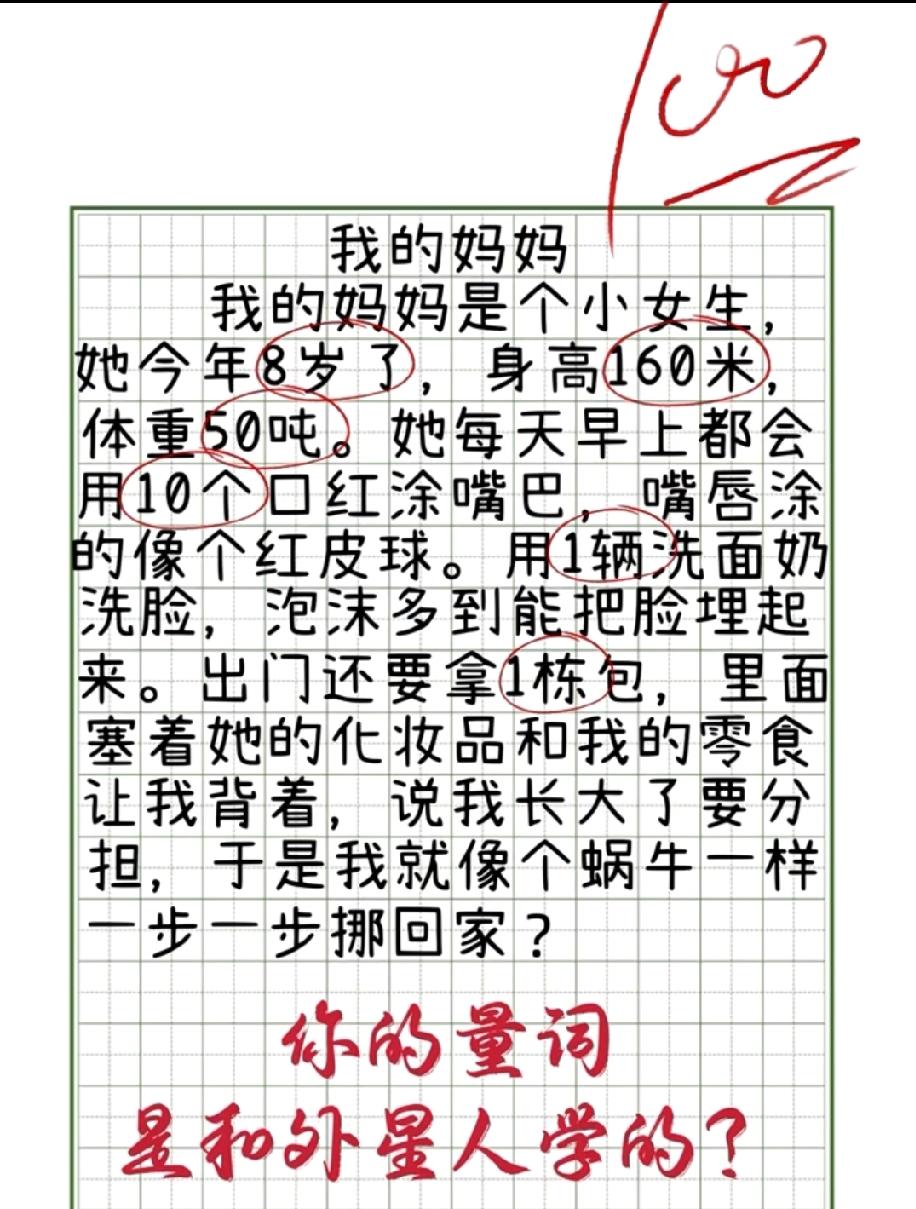 100
我的妈妈
我的妈妈是个小女生，
她今年8岁了，身高160米，
体重50吨。她每天早上都会
用10个口红涂嘴巴，嘴唇涂
的像个红皮球。用1辆洗面奶
洗脸，泡沫多到能把脸埋起
来。出门还要拿1栋包，里面
塞着她的化妆品和我的零食
让我背着，说我长大了要分
担，于是我就像个蜗牛一样
一步一步挪回家？
你的量词
是和外星人学的？